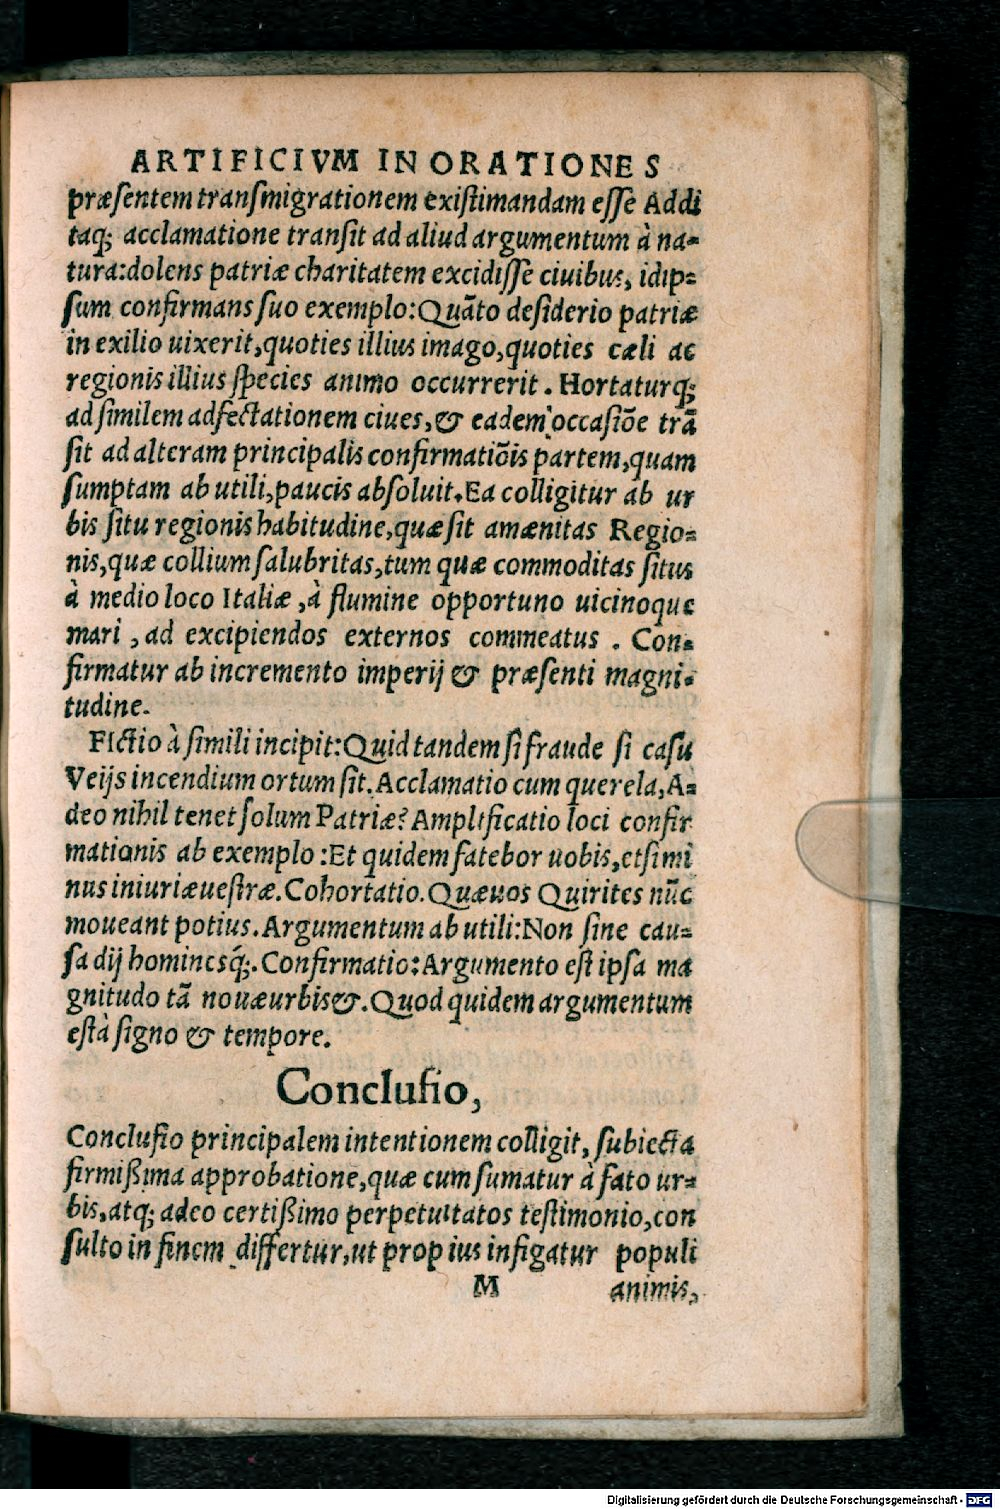 ARTIFICIVM IN ORATIONES
præsentem transmigrationem existimandam esse Addi
taq; acclamatione transit ad aliud argumentum à na-
tura: dolens patriæ charitatem excidisse ciuibus, idip-
sum confirmans suo exemplo: Quāto desiderio patriæ
in exilio uixerit, quoties illius imago, quoties cæli ac
regionis illius species animo occurrerit. Hortaturq;
ad similem adfectationem ciues, & eadem occasiōe trā
sit ad alteram principalis confirmatiōis partem, quam
sumptam ab utili, paucis absoluit. Ea colligitur ab ur
bis situ regionis habitudine, quæ sit amænitas Regio-
nis, quæ collium salubritas, tum quæ commoditas situs
à medio loco Italiæ, à flumine opportuno uicinoque
mari, ad excipiendos externos commeatus. Con-
firmatur ab incremento imperij & præsenti magni-
tudine.
Fictio à simili incipit: Quid tandem si fraude si casu
Veijs incendium ortum sit. Acclamatio cum querela, A-
deo nihil tenet solum Patriæ? Amplificatio loci confir
mationis ab exemplo: Et quidem fatebor uobis, etsi mi
nus iniuriæ uestræ. Cohortatio. Quæ uos Quirites nūc
moueant potius. Argumentum ab utili: Non sine cau-
sa dij hominesq́;. Confirmatio: Argumento est ipsa ma
gnitudo tā nouæ urbis &. Quod quidem argumentum
est à signo & tempore.
Conclusio,
Conclusio principalem intentionem colligit, subiecta
firmißima approbatione, quæ cum sumatur à fato ur-
bis, atq; adeo certißimo perpetuitatos testimonio, con
sulto in finem differtur, ut propius infigatur populi
M animis,
Digitalisierung gefördert durch die Deutsche Forschungsgemeinschaft - DFG